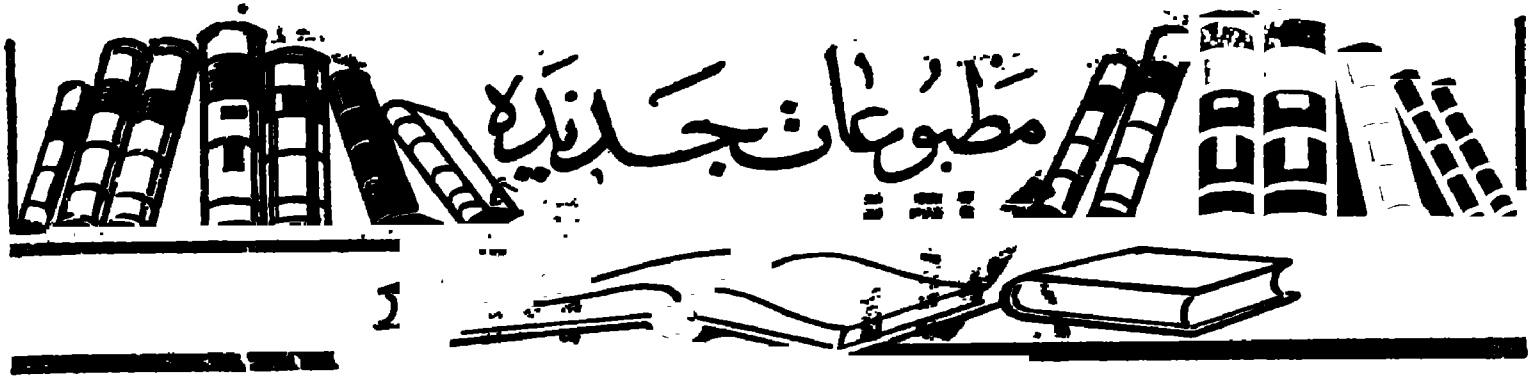 مَطبُوعَات جَديدَه